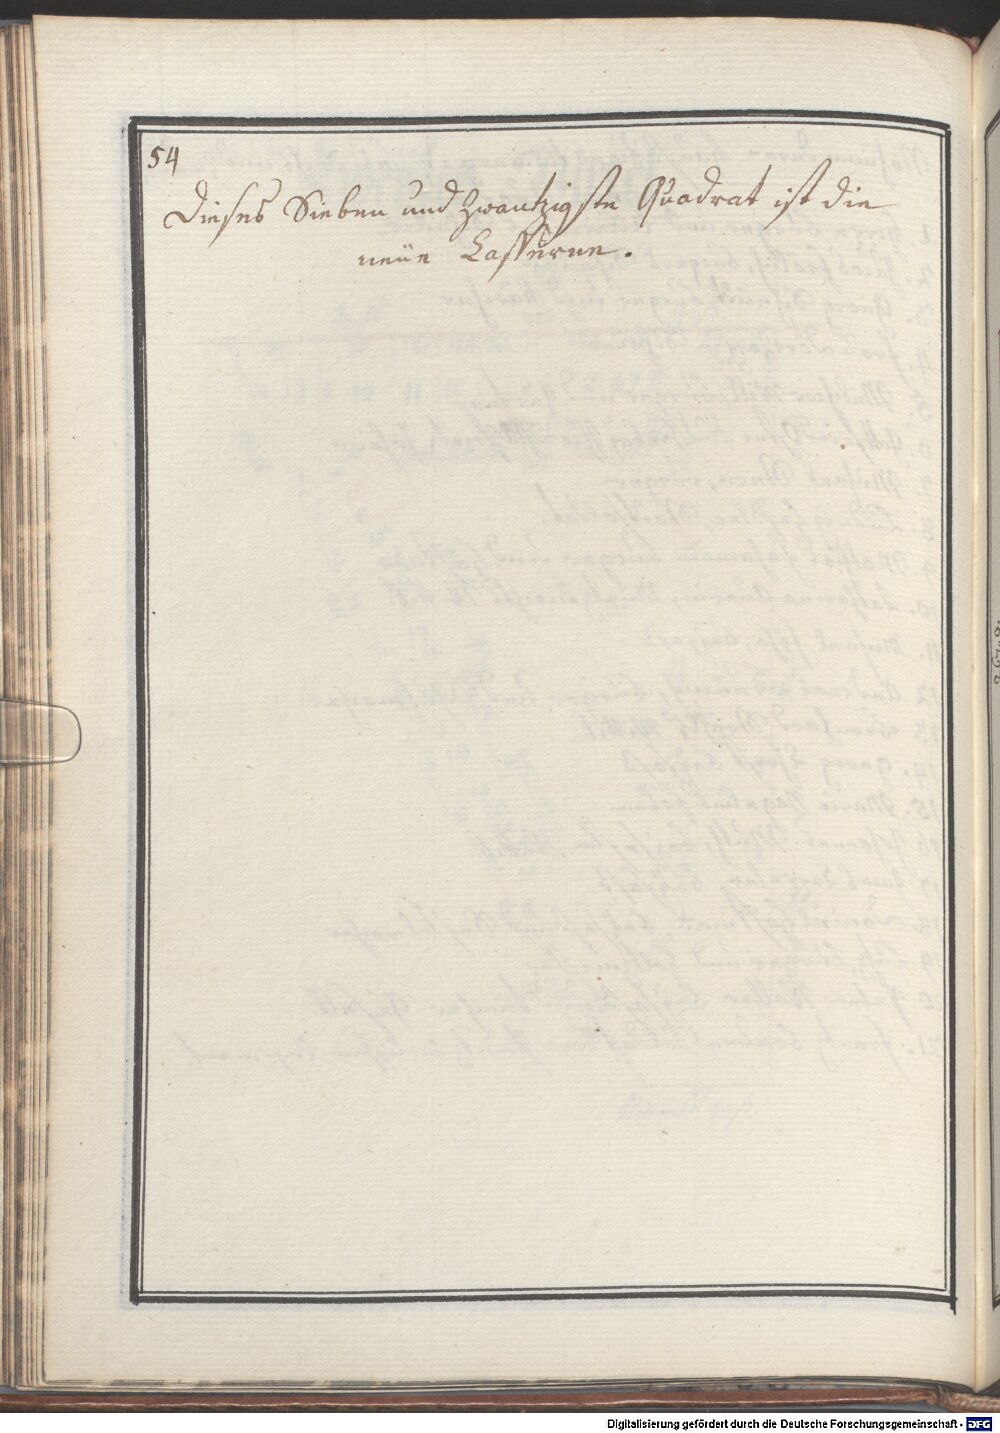 54
Dieses Sieben und Zwantzigste Quadrat ist die
neüe Casserne.
Digitalisierung gefördert durch die Deutsche Forschungsgemeinschaft - DFG